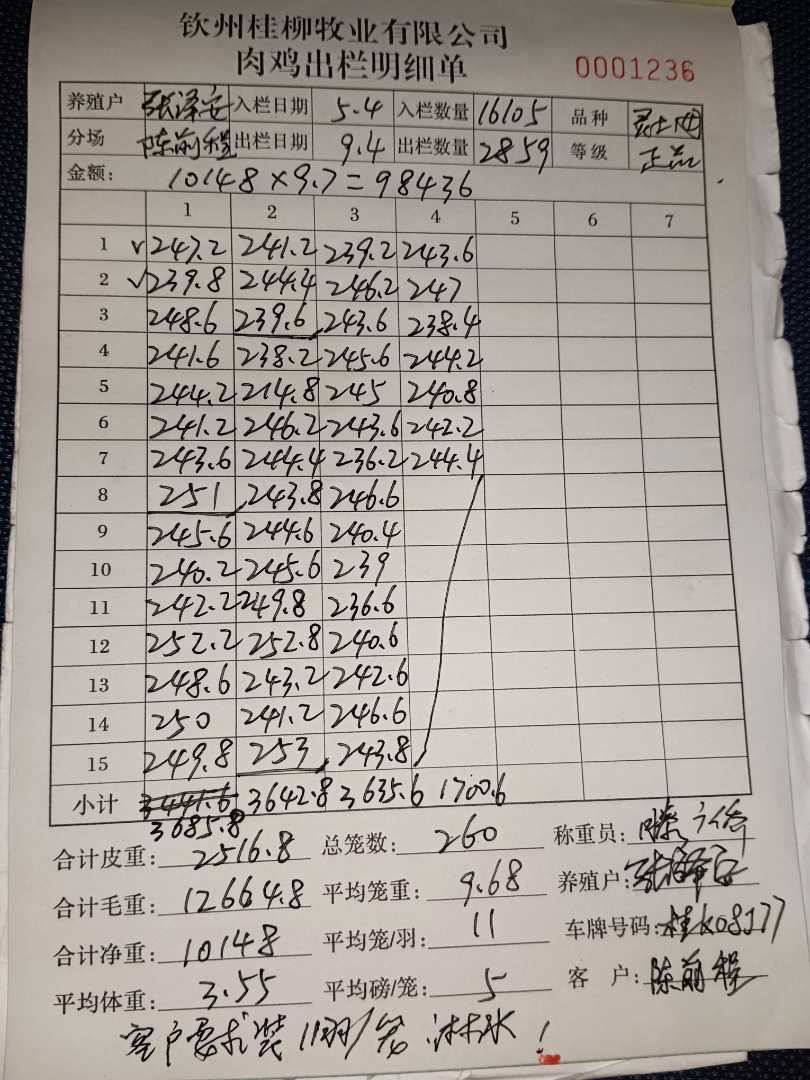 钦州桂柳牧业有限公司
肉鸡出栏明细单 0001236
养殖户 张泽安 入栏日期 5.4 入栏数量 16105 品种
分场 陈前程 出栏日期 9.4 出栏数量 2859 等级 正品
金额: 10148×9.7=98436
1 2 3 4 5 6 7
1 √247.2 241.2 239.2 243.6
2 √239.8 244.4 246.2 247
3 248.6 239.6 243.6 238.4
4 241.6 238.2 245.6 244.2
5 244.2 214.8 245 240.8
6 241.2 246.2 243.6 242.2
7 243.6 244.4 236.2 244.4
8 251 243.8 246.6
9 245.6 244.6 240.4
10 240.2 245.6 239
11 242.2 249.8 236.6
12 252.2 252.8 240.6
13 248.6 243.2 242.6
14 250 241.2 246.6
15 249.8 253 243.8
小计 3441.6 3642.8 3635.6 1700.6
3685.8
合计皮重: 2516.8 总笼数: 260 称重员:
合计毛重: 12664.8 平均笼重: 9.68 养殖户: 张泽安
合计净重: 10148 平均笼/羽: 11 车牌号码: 桂K08177
平均体重: 3.55 平均磅/笼: 5 客户: 陈前程
客户要求装11羽/笼.淋水!